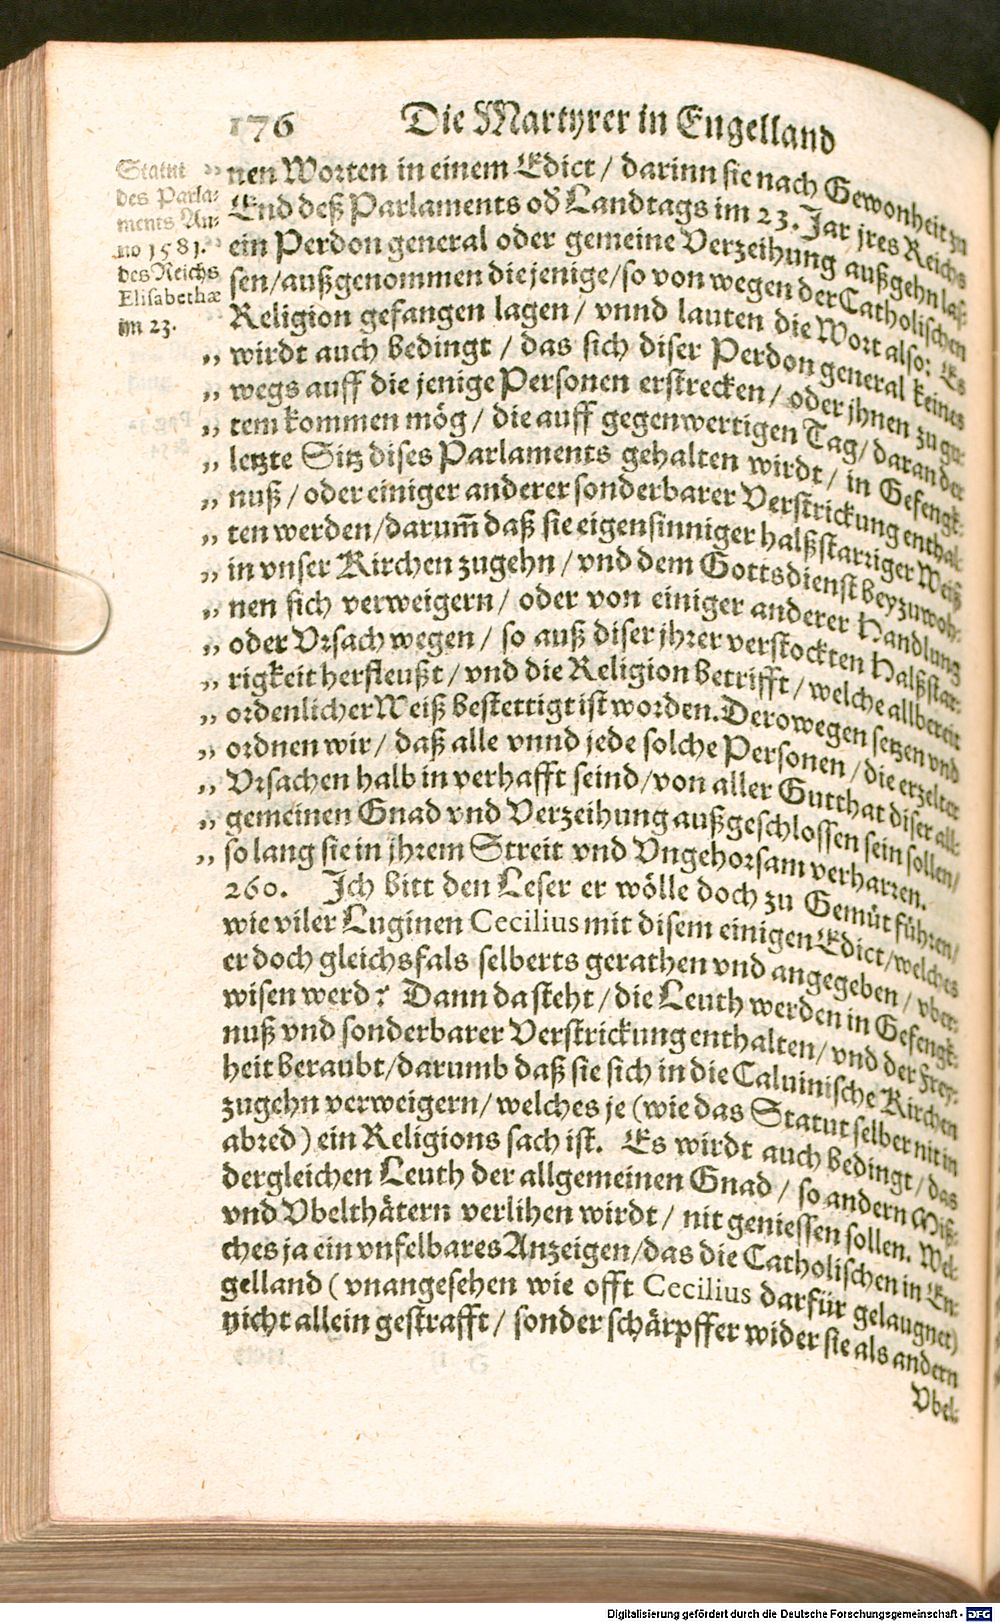 176 Die Martyrer in Engelland
Statut
des Parla-
ments An-
no 1581.
des Reichs
Elisabethæ
im 23.
„ nen Worten in einem Edict / darinn sie nach Gewonheit zu
„ End deß Parlaments od̕ Landtags im 23. Jar jres Reichs
„ ein Perdon general oder gemeine Verzeihung außgehn las-
sen/außgenommen diejenige/so von wegen der Catholischen
Religion gefangen lagen/ vnnd lauten die Wort also: Es
„ wirdt auch bedingt / das sich diser Perdon general keines
„ wegs auff die jenige Personen erstrecken / oder jhnen zu gu-
„ tem kommen mög / die auff gegenwertigen Tag/ daran der
„ letzte Sitz dises Parlaments gehalten wirdt/ in Gefengk-
„ nuß / oder einiger anderer sonderbarer Verstrickung enthal-
„ ten werden/darum̄ daß sie eigensinniger halßstarriger Weiß
„ in vnser Kirchen zugehn / vnd dem Gottsdienst beyzuwoh-
„ nen sich verweigern/ oder von einiger anderer Handlung
„ oder Vrsach wegen/ so auß diser jhrer verstockten Halßstar-
„ rigkeit herfleußt / vnd die Religion betrifft / welche allbereit
„ ordenlicher Weiß bestettigt ist worden. Derowegen setzen vnd
„ ordnen wir/ daß alle vnnd jede solche Personen / die erzelter
„ Vrsachen halb in verhafft seind/von aller Gutthat diser all-
„ gemeinen Gnad vnd Verzeihung außgeschlossen sein sollen/
„ so lang sie in jhrem Streit vnd Vngehorsam verharren.
260. Ich bitt den Leser er wölle doch zu Gemüt führen/
wie viler Luginen Cecilius mit disem einigen Edict/welches
er doch gleichsfals selberts gerathen vnd angegeben / vber-
wisen werd? Dann da steht / die Leuth werden in Gefengk-
nuß vnd sonderbarer Verstrickung enthalten/ vnd der Frey-
heit beraubt/darumb daß sie sich in die Caluinische Kirchen
zugehn verweigern/ welches je (wie das Statut selber nit in
abred) ein Religions sach ist. Es wirdt auch bedingt/ das
dergleichen Leuth der allgemeinen Gnad / so andern Miß-
vnd Vbelthätern verlihen wirdt / nit geniessen sollen. Wel-
ches ja ein vnfelbares Anzeigen/das die Catholischen in En-
gelland (vnangesehen wie offt Cecilius darfür gelaugnet)
nicht allein gestrafft / sonder schärpffer wider sie als andern
Vbel-
Digitalisierung gefördert durch die Deutsche Forschungsgemeinschaft - DFG